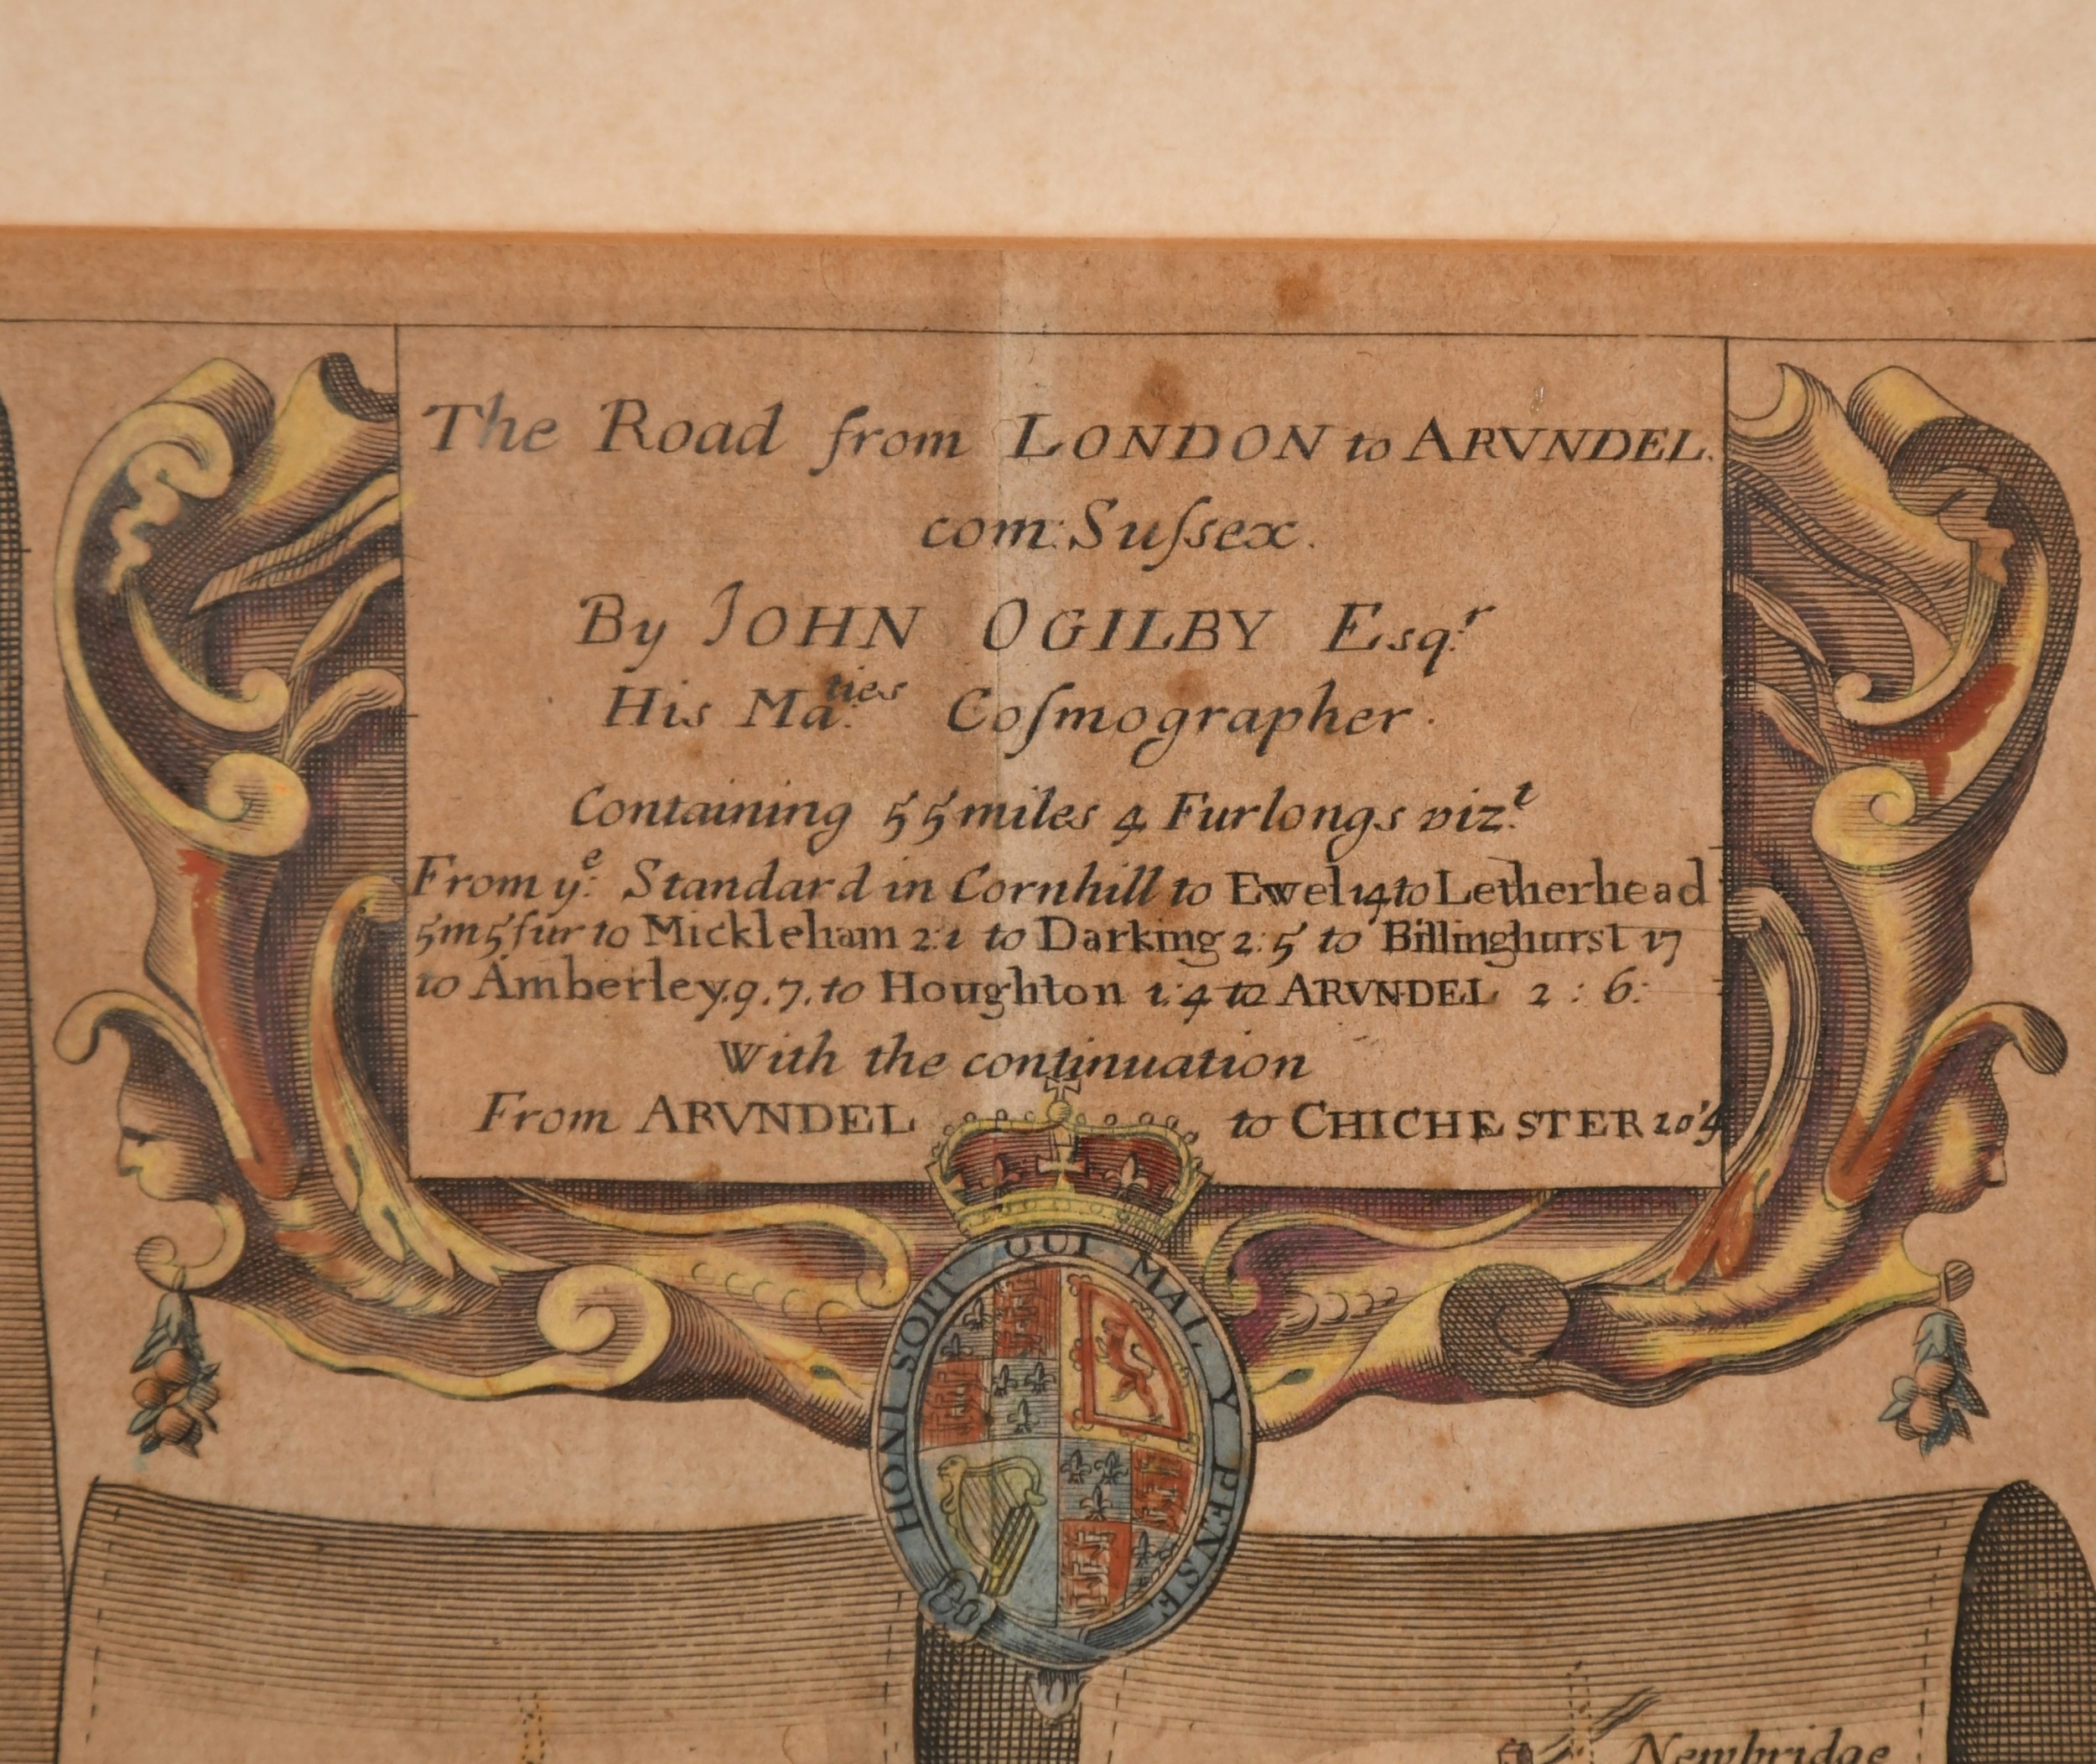 The Road from LONDON to ARVNDEL.
com: Suſsex.
By IOHN OGILBY Esqr.
His Maties. Coſmographer.
Containing 55 miles 4 Furlongs vizt.
From ye: Standard in Cornhill to Ewel 14 to Letherhead
5m 5fur to Mickleham 2:1 to Darking 2:5 to Billinghurst 17
to Amberley.9.7. to Houghton 1:4 to ARVNDEL 2:6:
With the continuation
From ARVNDEL to CHICHESTER 10'4
HONI SOIT QUI MAL Y PENSE
Newbridge